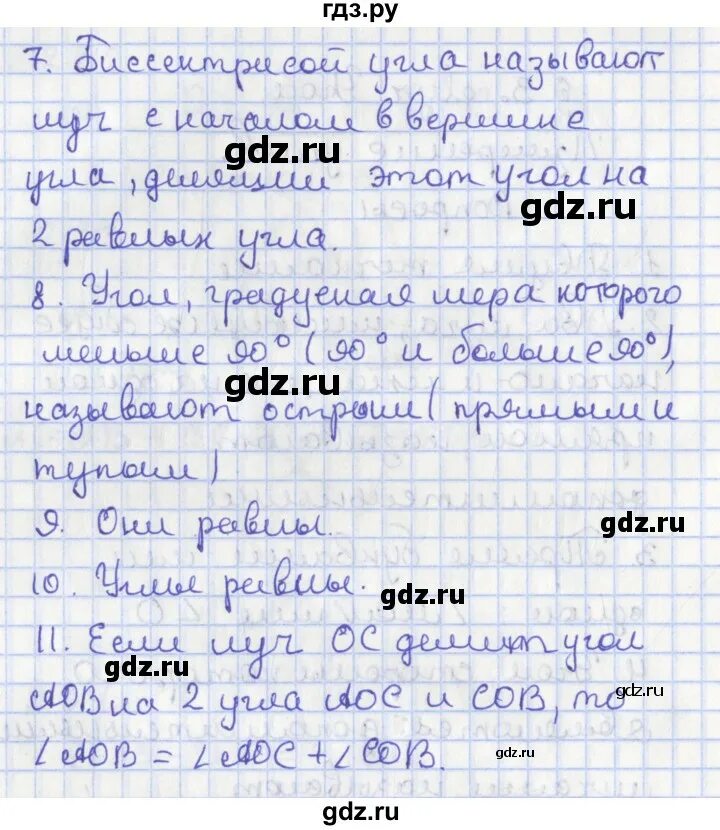 гдз.ру
7. Биссектрисой угла называют
луч с началом в вершине
gdz.ru
угла, делящий этот угол на
gdz.ru
2 равных угла.
8. Угол, градусная мера которого
меньше 90° (90° и больше 90°),
gdz.ru
называют острым (прямым и
тупым)
9. Они равны.
gdz.ru
10. Углы равны.
gdz.ru
11. Если луч ОС делит угол
gdz.ru
АОВ на 2 угла АОС и СОВ, то
gdz.ru
∠АОВ = ∠АОС + ∠СОВ.
gdz.ru
gdz.ru